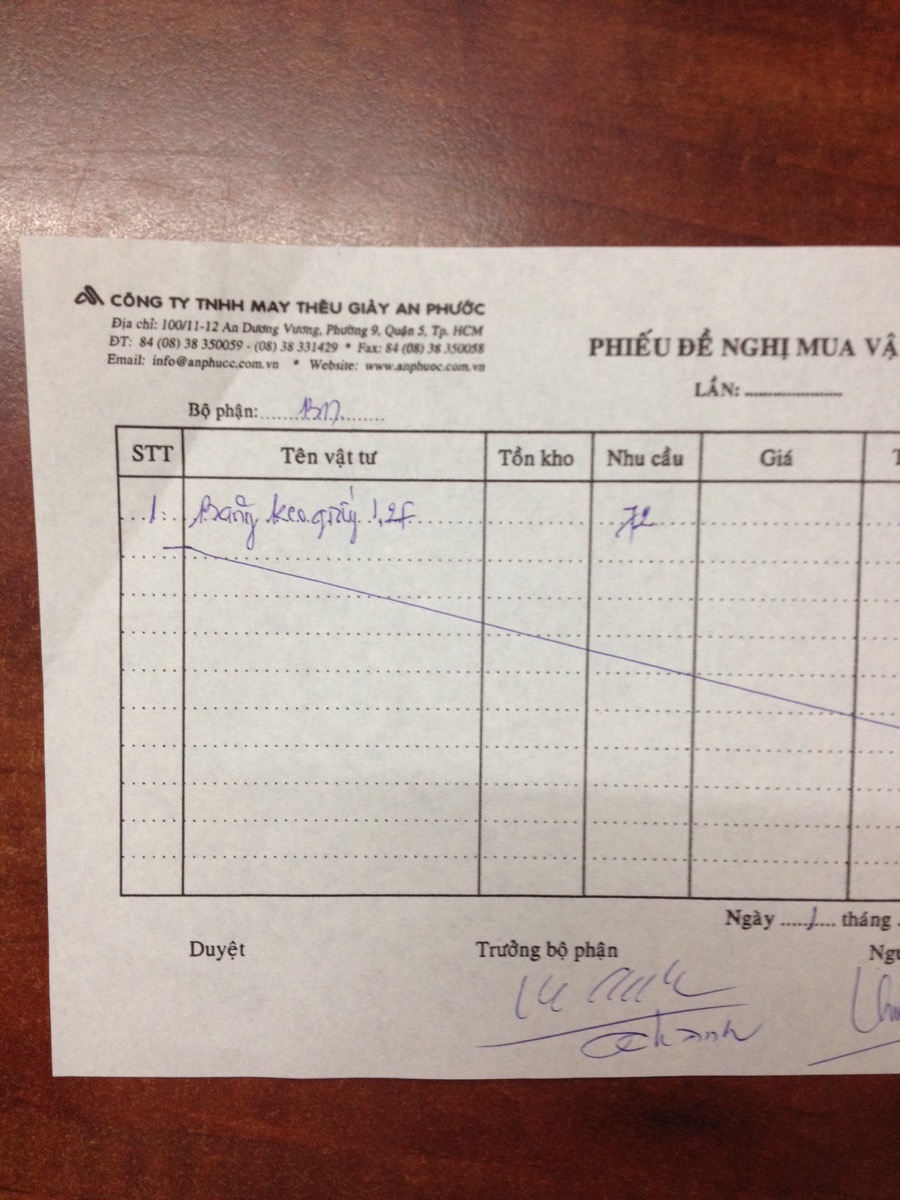 CÔNG TY TNHH MAY THÊU GIÀY AN PHƯỚC
Địa chỉ: 100/11-12 An Dương Vương, Phường 9, Quận 5, Tp. HCM
ĐT: 84 (08) 38 350059 - (08) 38 331429 * Fax: 84 (08) 38 350058
Email: info@anphucc.com.vn * Website: www.anphuoc.com.vn
PHIẾU ĐỀ NGHỊ MUA VẬ
LẦN: ....................
Bộ phận:
STT Tên vật tư Tồn kho Nhu cầu Giá T
1. Băng keo giấy 1,2f 72
Ngày .....1.... tháng
Duyệt Trưởng bộ phận Ngư